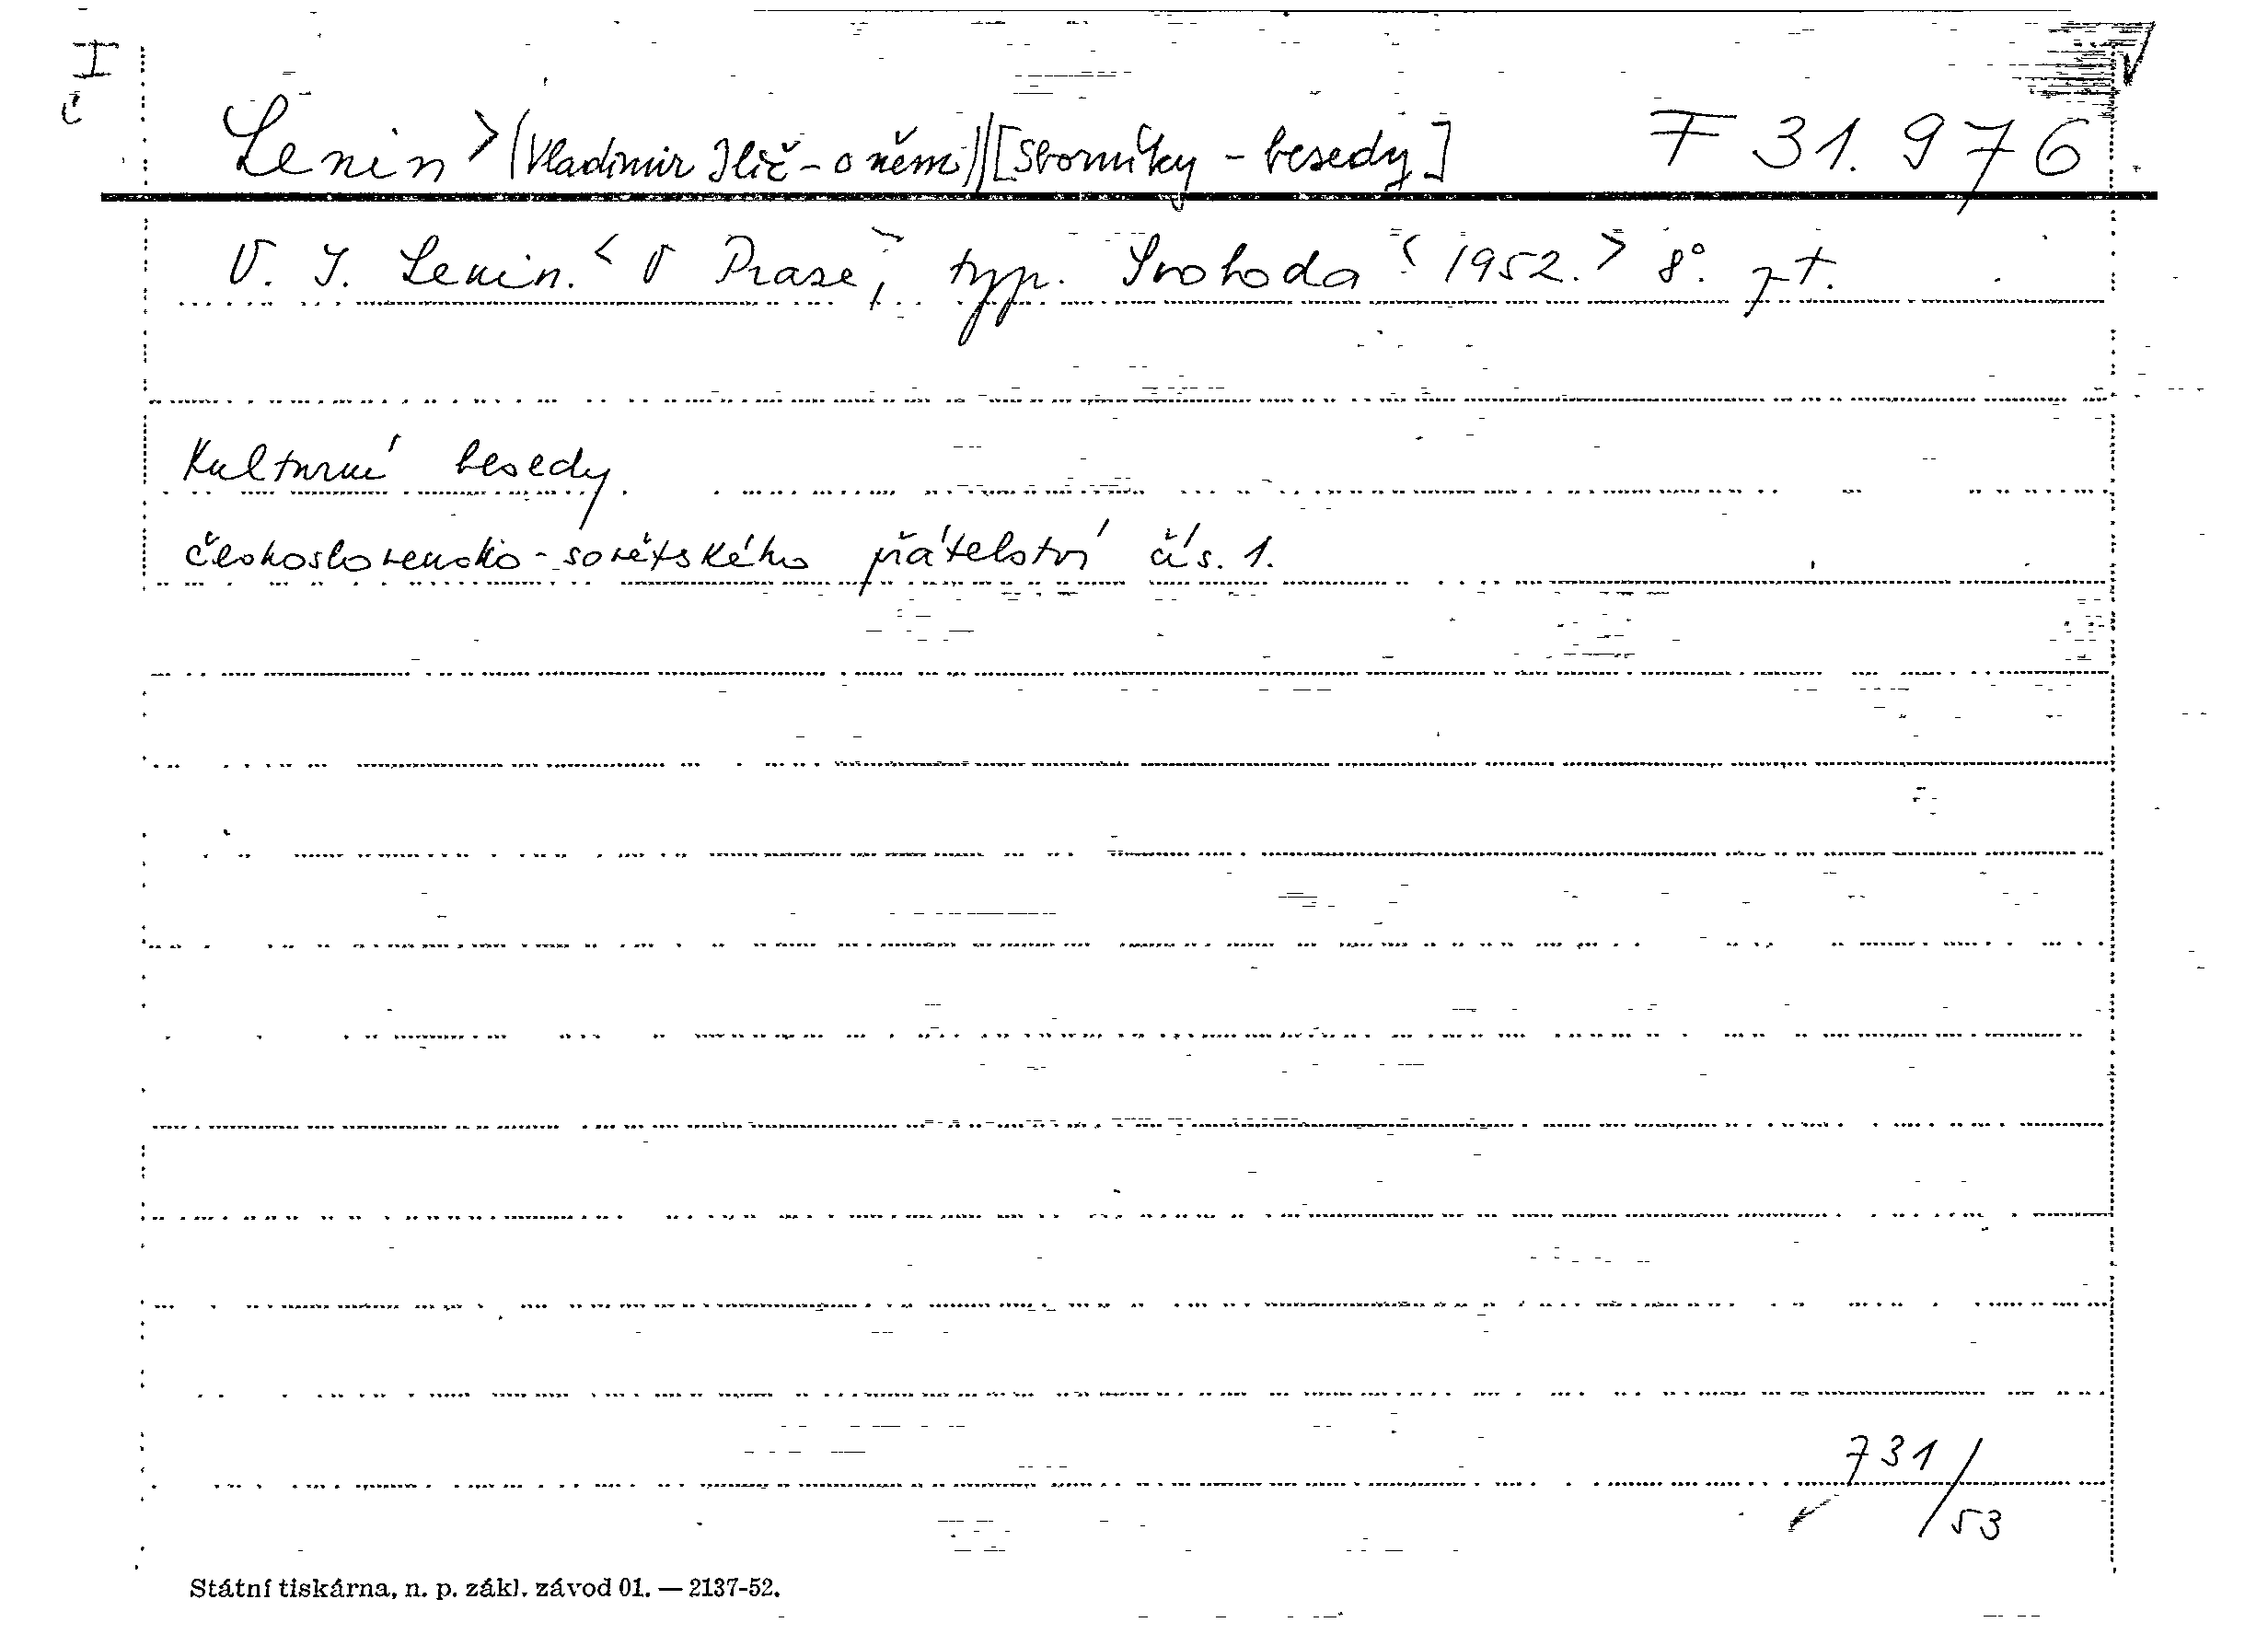 I
č
Lenin > (Vladimir Iljič - o něm) [Sborníky - besedy] F 31.976
V. I. Lenin. < V Praze, > typ. Svoboda < 1952. > 8°. 7 t.
Kulturní besedy
československo-sovětského přátelství čís. 1.
731/53
Státní tiskárna, n. p. zákl. závod 01. — 2137-52.